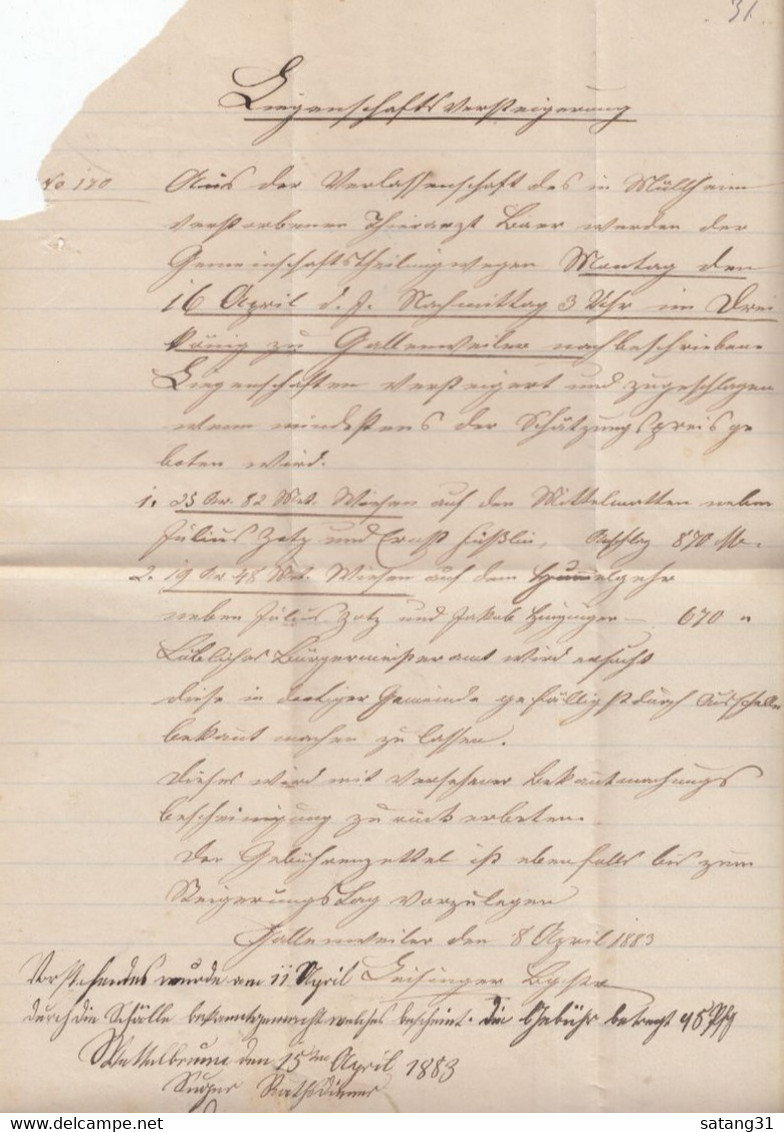 31
Liegenschaftsversteigerung
No 170 Aus der Verlassenschaft des in Müllheim
verstorbenen Thierarzt Baer werden der
Gemeinschaftstheilung wegen Montag den
16 April d. J. Nachmittag 3 Uhr im Drei
König zu Gallenweiler nachbeschriebene
Liegenschaften versteigert und zugeschlagen
wenn mindestens der Schätzungspreis ge
boten wird.
1. 25 Ar. 82 Met. Wiesen auf den Mittelmatten neben
Julius Zotz und Ernst Füßlin, Anschlag 870 M.
2. 19 Ar 48 Met. Wiesen auf dem
neben Julius Zotz und Jakob 670 "
Löbliches Bürgermeisteramt wird ersucht
diese in dortiger Gemeinde gefälligst durch Ausschellen
bekant machen zu lassen.
Dieses wird mit versehener Bekantmachungs
bescheinigung zurück erbeten.
Der Gebührenzettel ist ebenfalls bis zum
Steigerungstag vorzulegen
Gallenweiler den 8 April 1883
Vorstehendes wurde am 11 April Leisinger
durch die Schälle bekanntgemacht welches bescheint. Die Gebühr betragt 45 Pfg
Wettelbrunn den 15ten April 1883
Rathsdiener
satang31